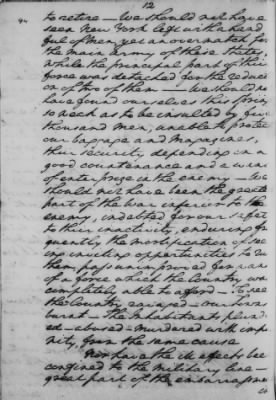 12
to retire — We should not have
seen New York left with a hand
ful of men, yet an overmatch for
the main army of these States,
while the principal part of their
force was detached for the reduci
on of two of them — We should no
have found ourselves this spring
so weak as to be insulted by five
thousand men, unable to protec
our baggage and magazines,
their security depending on a
good countenance and a want
of enterprize in the enemy — We
should not have been the greate
part of the war inferior to the
enemy, indebted for our safet
to their inactivity, enduring fre
quently the mortification of see
ing inviting opportunities to ru
them pass unimproved for want
of a force which the Country was
completely able to afford — To see
the Country ravaged — our towns
burnt — the inhabitants plund
ed — abused & murdered with imp
nity, from the same cause
Nor have the ill effects bee
confined to the Military line —
great part of the embarrassme